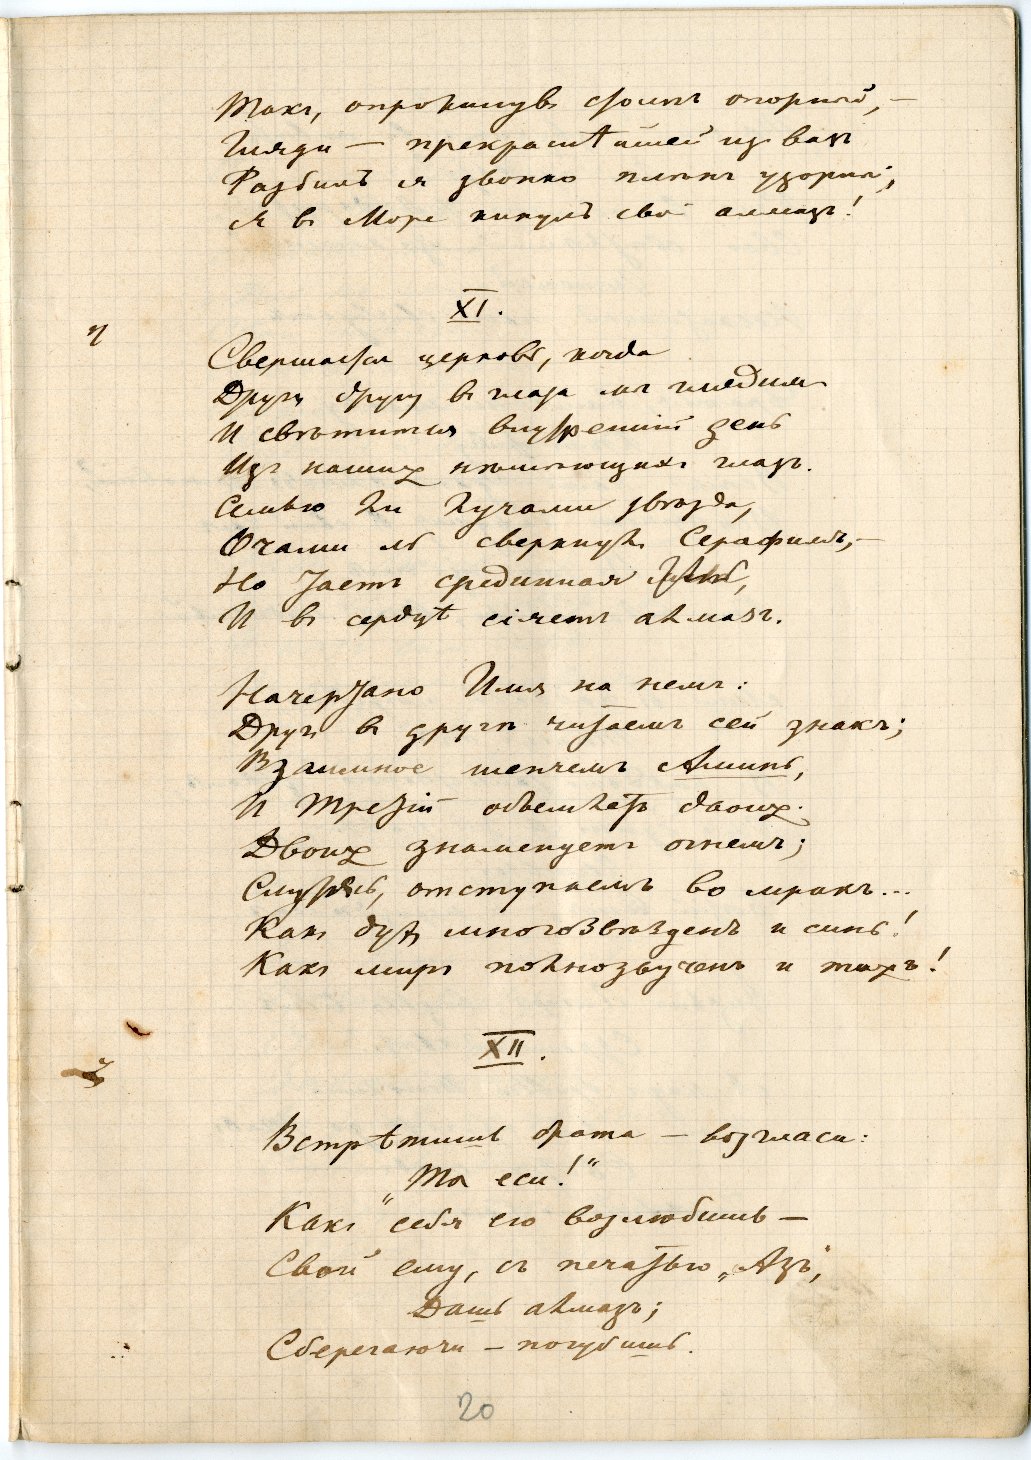 Такъ, опрокинувъ столпъ опорный, —
Гляди — прекраснѣйшей изъ вазъ
Разбилъ я звонко плѣнъ узорный;
Я въ Море кинулъ свой алмазъ!
XI.
Свершается церковь, когда
Другъ другу въ глаза мы глядимъ
И свѣтится внутренній день
Изъ нашихъ нѣмѣющихъ глазъ.
Семью ли лучами звѣзда,
Очами ль сверкнулъ Серафимъ, —
Но таетъ срединная тѣнь,
И въ сердцѣ сіяетъ алмазъ.
Начертано Имя на немъ:
Другъ въ другѣ читаемъ сей знакъ;
Взаимное шепчемъ Аминь,
И Третій объемлетъ двоихъ.
Двоихъ знаменуетъ огнемъ;
Смутясь, отступаемъ во мракъ...
Какъ духъ многозвѣзденъ и синь!
Какъ миръ полнозвученъ и тихъ!
XII.
Встрѣтишь брата — возгласи:
„Ты еси!“
Какъ себя его возлюбишь —
Свой ему, съ печатью „Азъ“,
Дашь алмазъ;
Сберегаючи — погубишь.
20